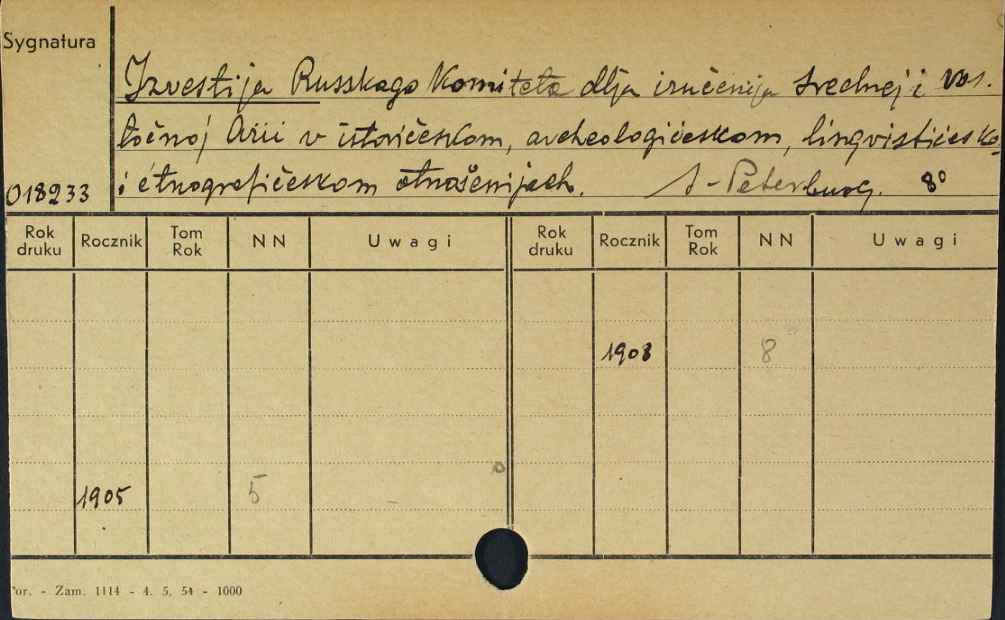 Sygnatura
Izvestija Russkago Komiteta dlja izučenija Srednej i Vos.
točnoj Azii v istoričeskom, archeologičeskom, lingvističesko
018233 i étnografičeskom otnošenijach. S-Peterburg. 8°
Rok druku Rocznik Tom Rok NN Uwagi Rok druku Rocznik Tom Rok NN Uwagi
1908 8
1905 5
or. - Zam. 1114 - 4. 5. 54 - 1000